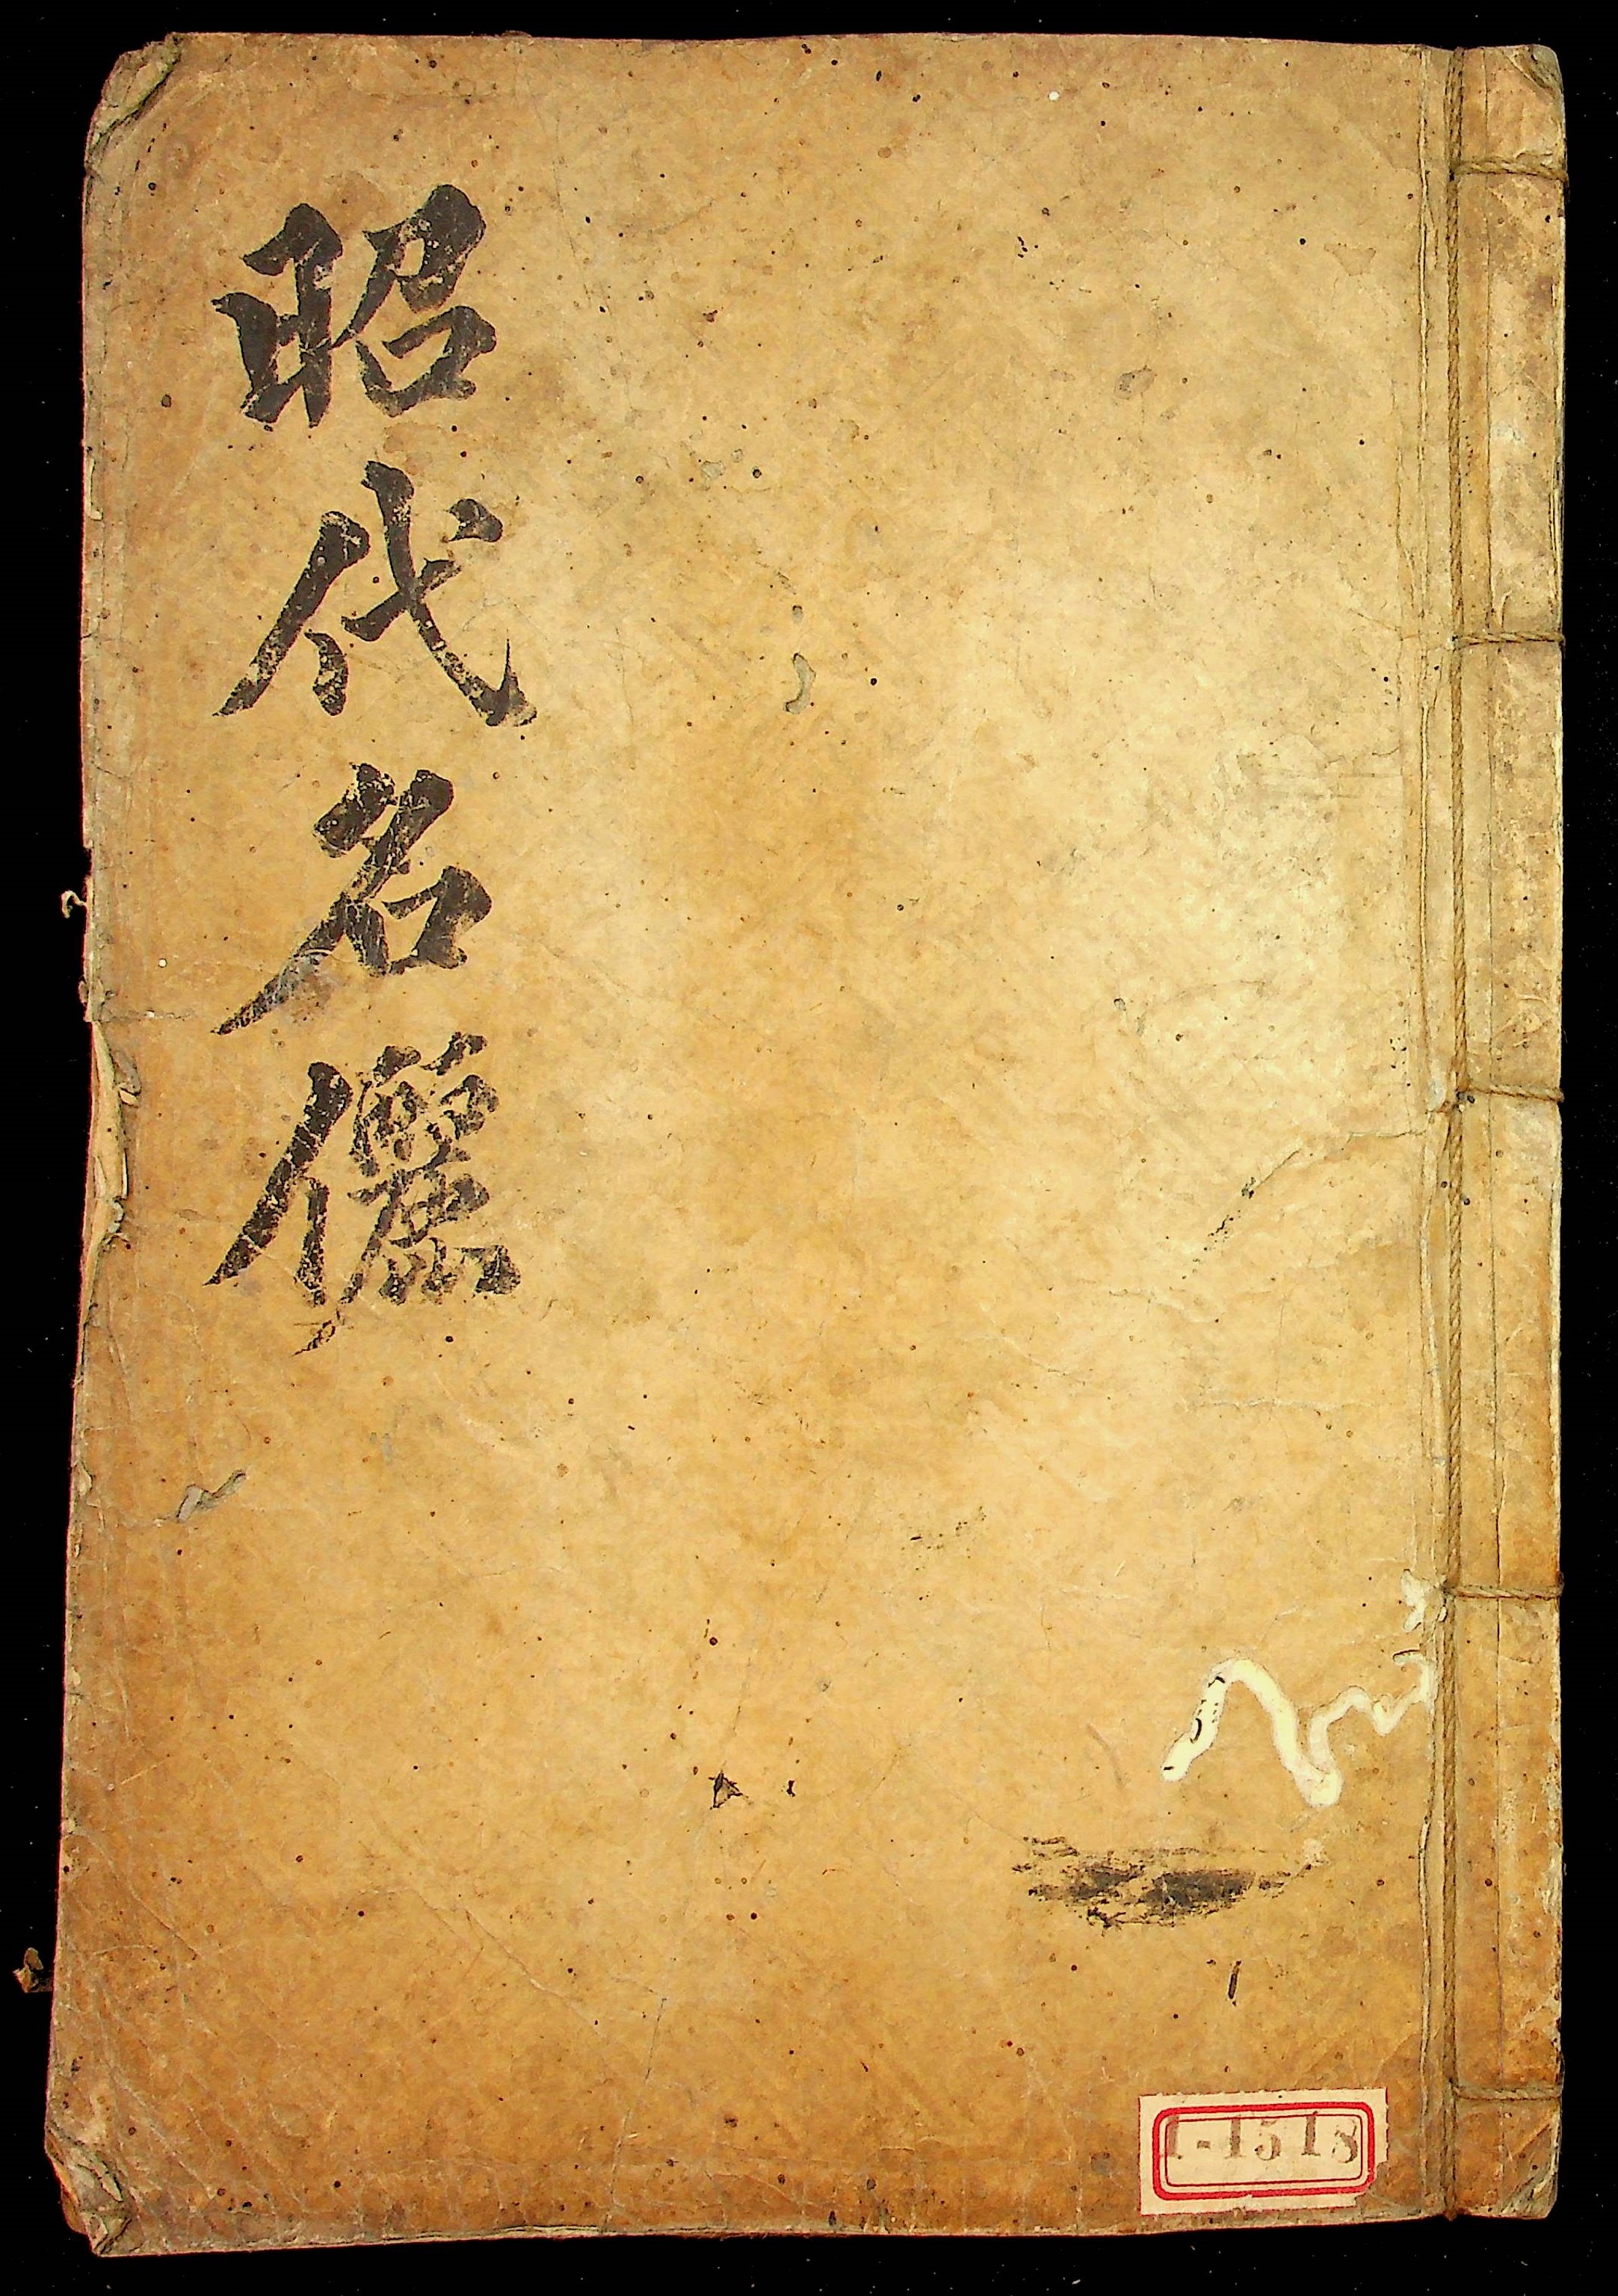 昭代名儷
1-1518